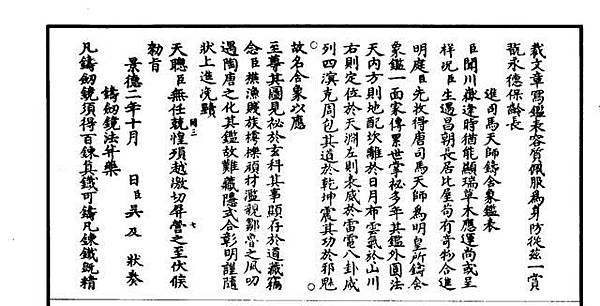 裁文章寫鑑表容質佩服為身防從茲一賞
翫永德保齡長
進司馬天師鑄含象鑑表
臣聞川嶽逢時猶能顯瑞草木應運尚或呈
祥況臣生遇昌朝長居比屋尚有奇物合進
明庭臣先收得唐司馬天師為明皇所鑄含
象鑑一面家傳累世掌祕多年其鑑外圓法
天內方則地配坎離於日月布雲氣於山川
右則定位於天淵左則表威於雷電八卦成
列四瀆克周包其道於乾坤震其功於邪魅
故名含象以應
至尊其圖見祕於玄科其事顯存於道藏竊
念臣樵漁賤族樗櫟頑材濫親鄒魯之風叨
遇陶唐之化其鑑故難藏隱式合彰明謹隨
狀上進況黷
天聰臣無任兢惶殞越激切屏營之至伏候
聞三 七
勅旨
景德二年十月 日臣吳及 狀奏
鑄劒鏡法并藥
凡鑄劒鏡須得百鍊真鐵可鑄凡鍊鐵既精